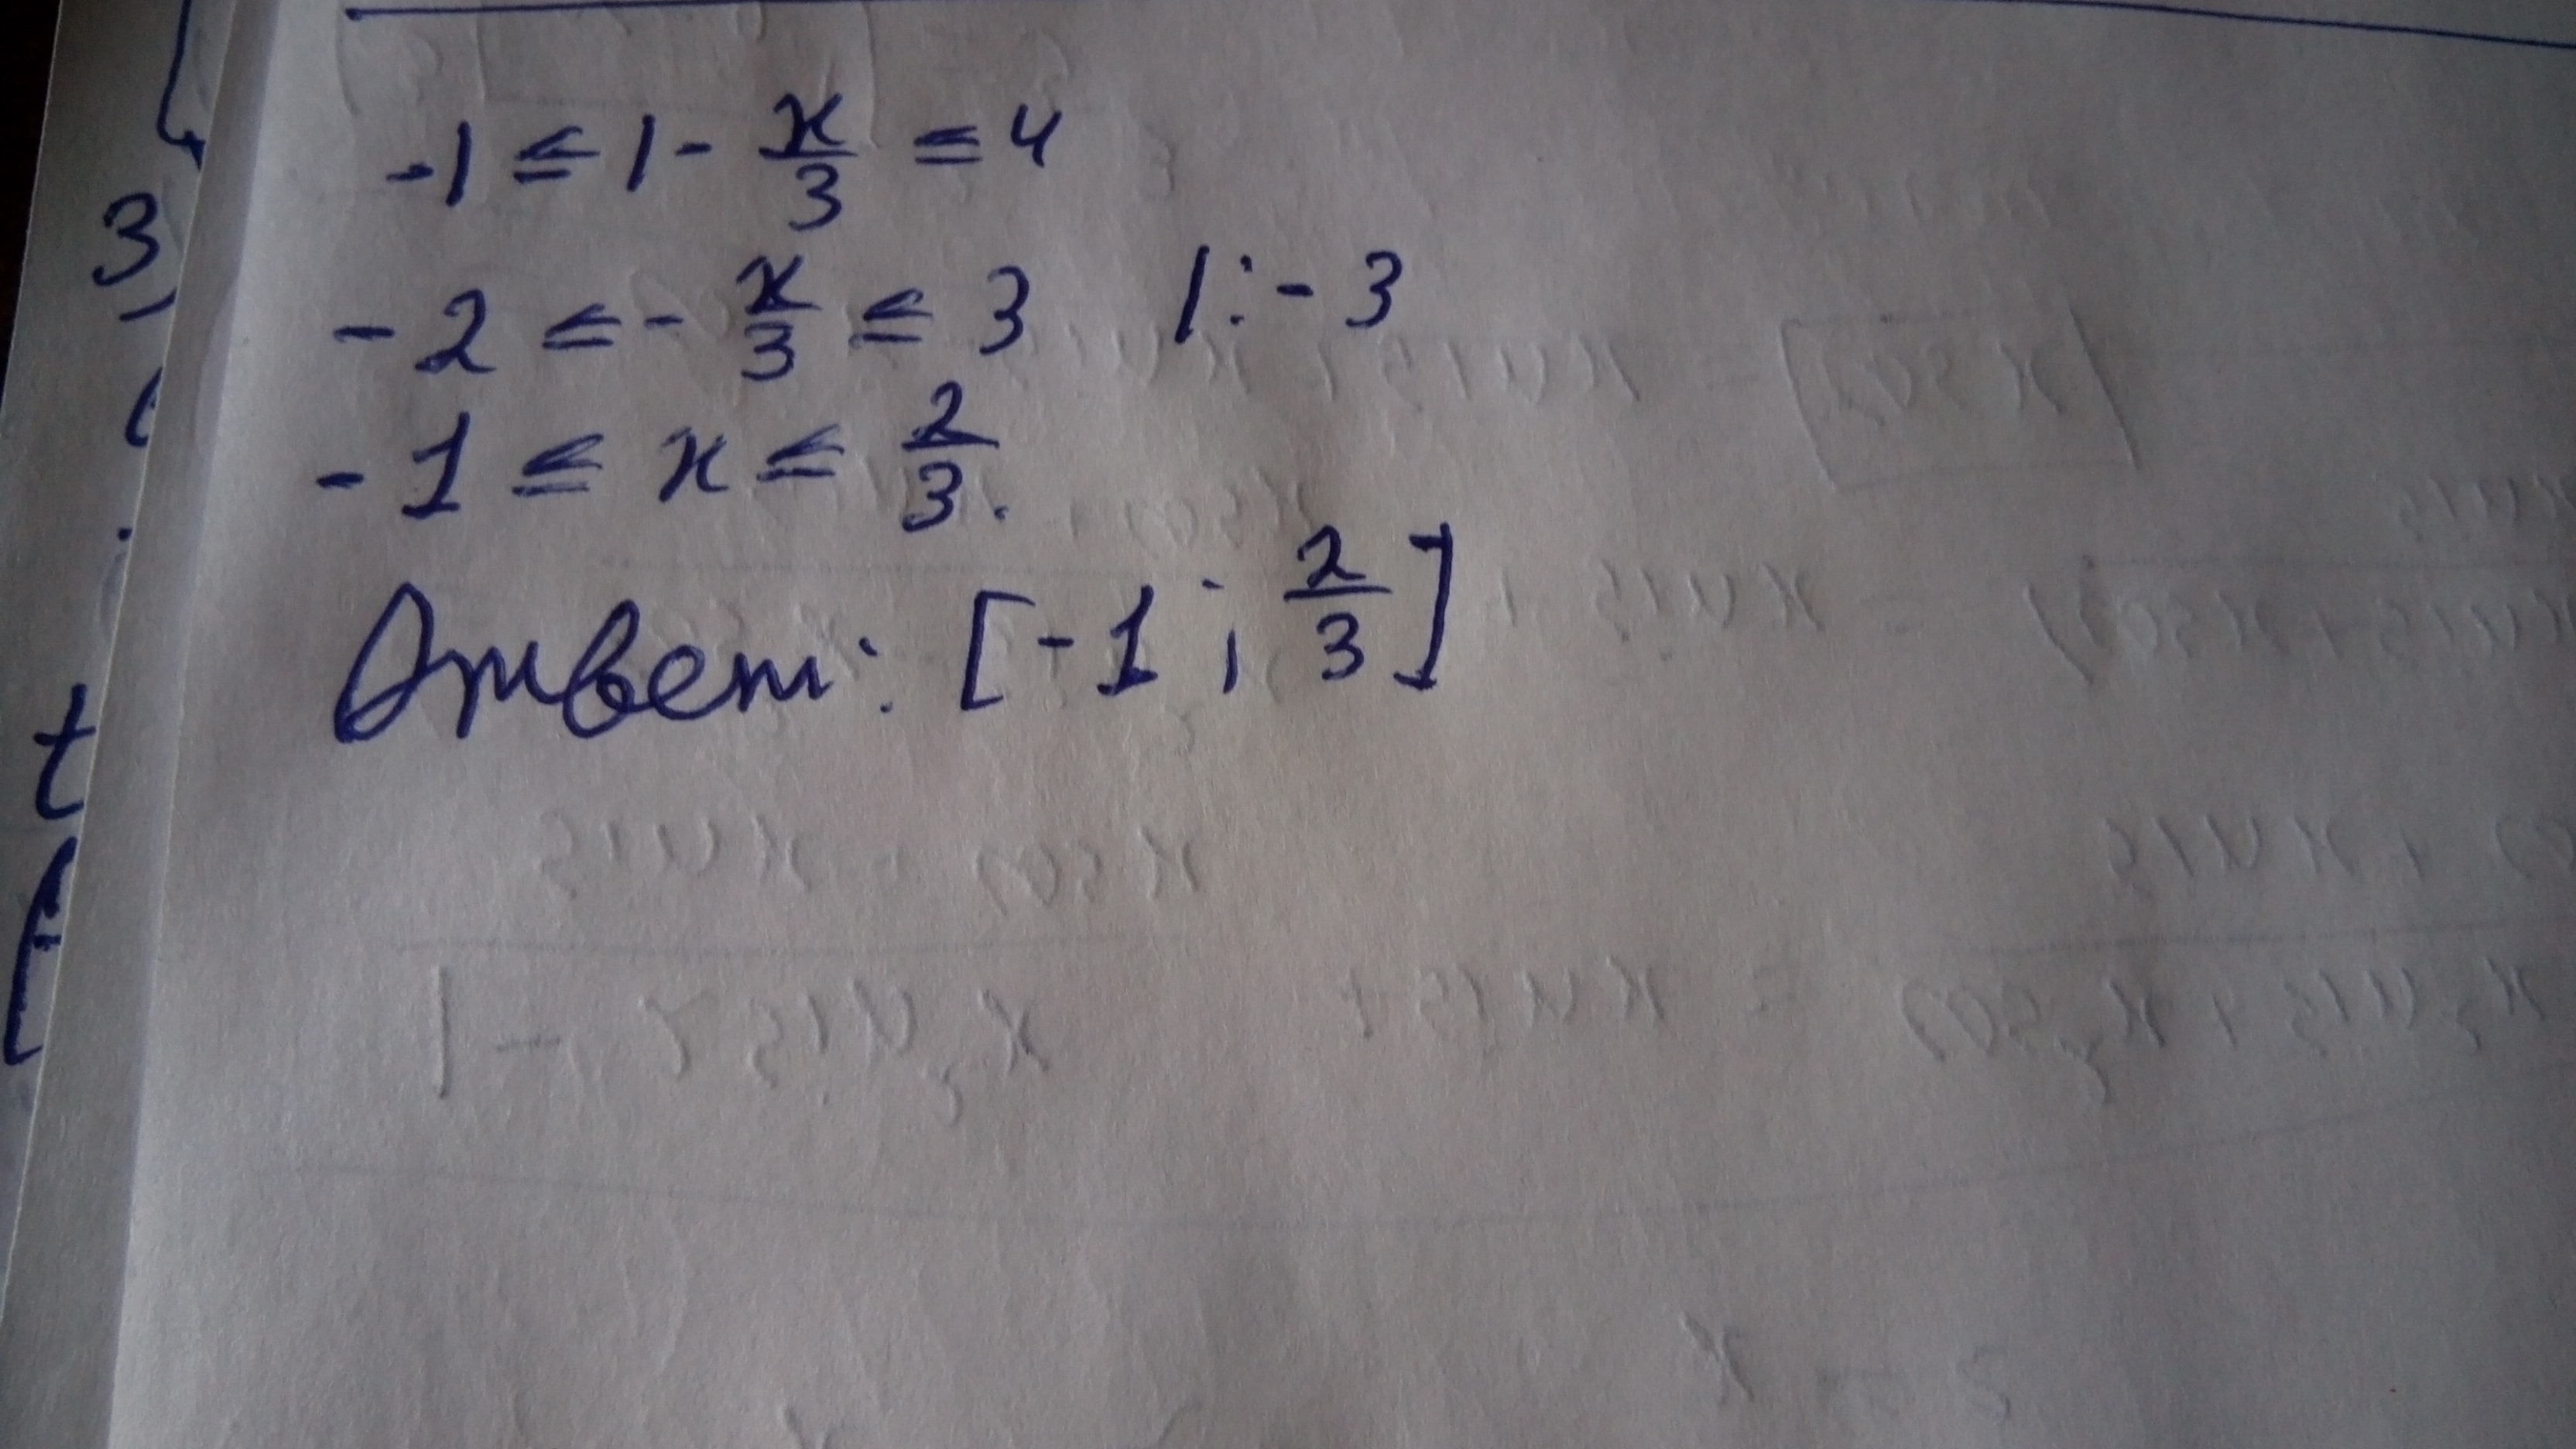 -1 ≤ 1 - x/3 ≤ 4
-2 ≤ - x/3 ≤ 3 |: -3
-1 ≤ x ≤ 2/3.
Ответ: [-1; 2/3]
3
t
[